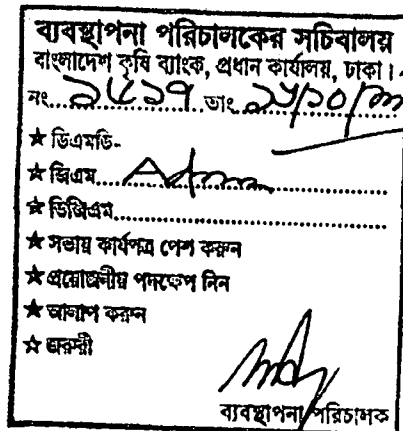 ব্যবস্থাপনা পরিচালকের সচিবালয়
বাংলাদেশ কৃষি ব্যাংক, প্রধান কার্যালয়, ঢাকা।
নং..................তাং..................
★ ডিএমডি-
★ জিএম..........Adm..........
★ ডিজিএম..............................
★ সভায় কার্যপত্র পেশ করুন
★ প্রয়োজনীয় পদক্ষেপ নিন
★ আলাপ করুন
★ জরুরী
ব্যবস্থাপনা পরিচালক